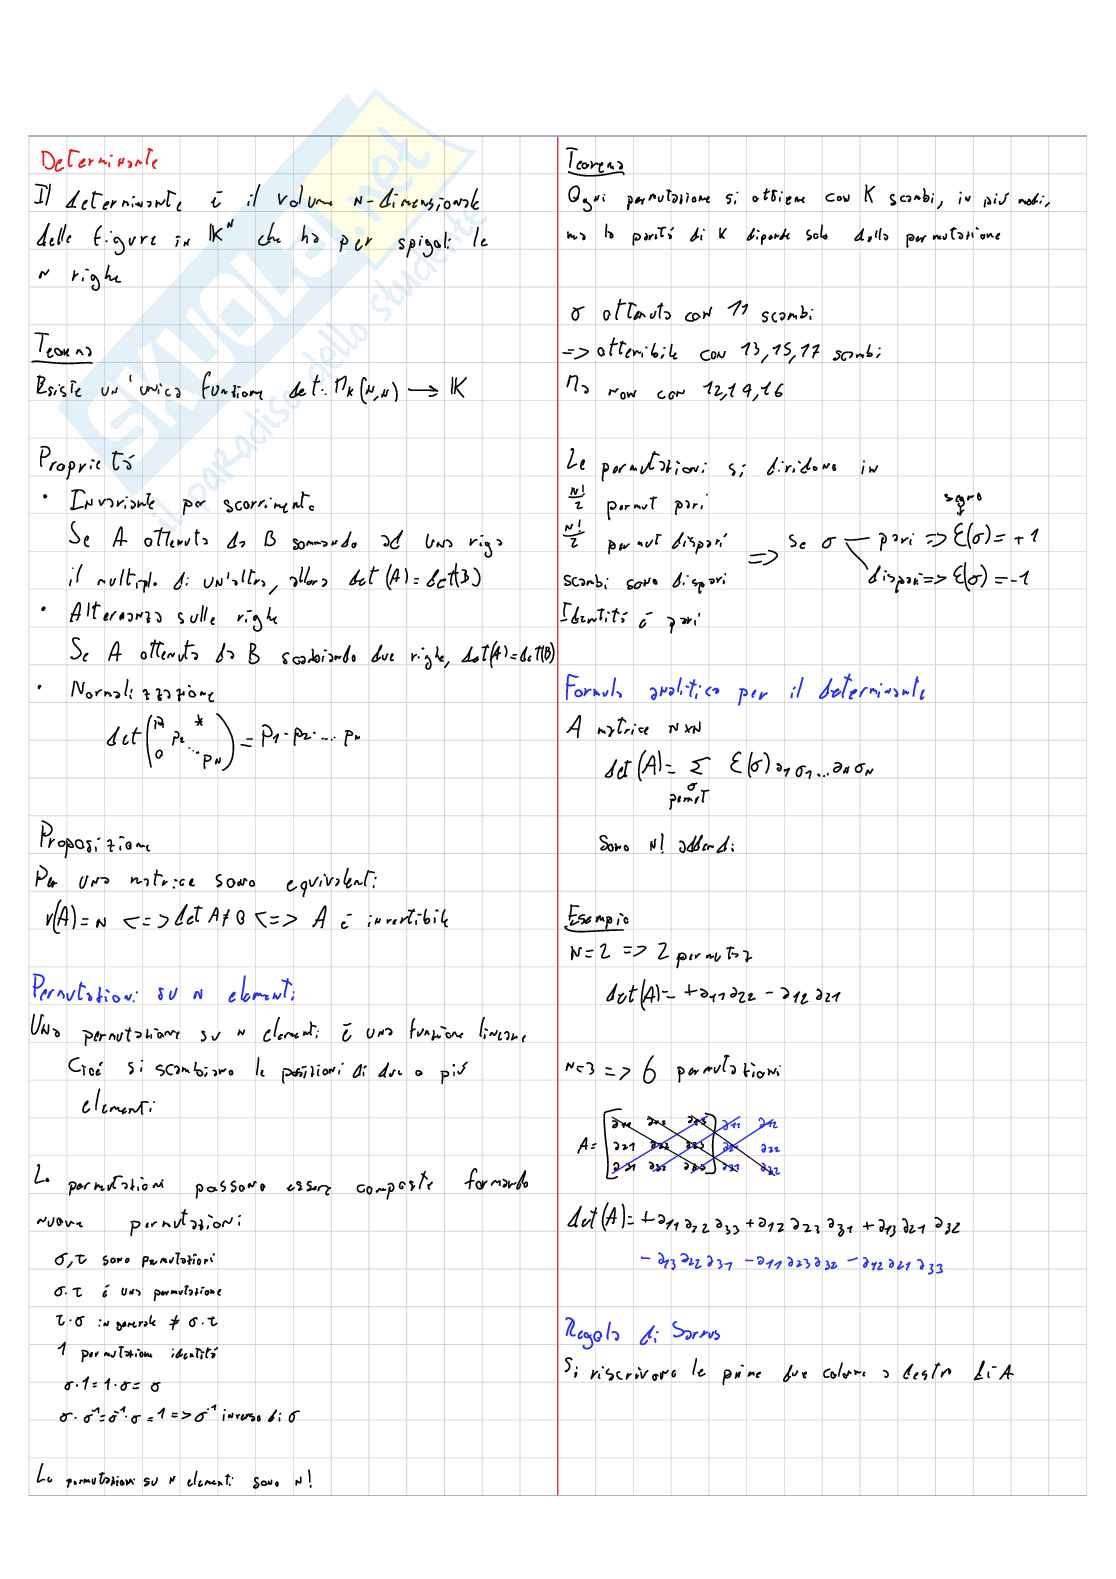 Determinante
Il determinante è il volume N-dimensionale
delle figure in K^N che ha per spigoli le
N righe
Teorema
Esiste un'unica funzione det: M_K(N,N) → K
Proprietà
• Invariante per scorrimento
Se A ottenuta da B sommando ad una riga
il multiplo di un'altra, allora det(A)=det(B)
• Alternanza sulle righe
Se A ottenuta da B scambiando due righe, det(A)=det(B)
• Normalizzazione
det(P1 * P2 ... 0 PN) = P1·P2·...PN
Proposizione
Per una matrice sono equivalenti:
r(A)=N <=> det A≠0 <=> A è invertibile
Permutazioni su N elementi
Una permutazione su N elementi è una funzione lineare
Cioè si scambiano le posizioni di due o più
elementi
Le permutazioni possono essere composte formando
nuove permutazioni
σ,τ sono permutazioni
σ·τ è una permutazione
τ·σ in generale ≠ σ·τ
1 permutazione identità
σ·1=1·σ=σ
σ·σ^-1=σ^-1·σ=1=>σ^-1 inverso di σ
Le permutazioni su N elementi sono N!
Teorema
Ogni permutazione si ottiene con K scambi, in più modi,
ma la parità di K dipende solo dalla permutazione
σ ottenuta con 11 scambi
=> ottenibile con 13,15,17 scambi
Ma non con 12,14,16
Le permutazioni si dividono in
N!/2 permut pari
segno
N!/2 permut dispari => Se σ — pari => Ɛ(σ)=+1
scambi sono dispari
dispari=> Ɛ(σ)=-1
Identità è pari
Formula analitica per il determinante
A matrice N×N
det(A)= Σ Ɛ(σ) a1σ1...aNσN
σ
permut
Sono N! addendi
Esempio
N=2 => 2 permutaz
det(A)=+a11a22 - a12a21
N=3 => 6 permutazioni
A= [a11 a12 a13] a11 a12
a21 a22 a23 a21 a22
a31 a32 a33 a31 a32
det(A)=+a11a22a33+a12a23a31+a13a21a32
-a13a22a31-a11a23a32-a12a21a33
Regola di Sarrus
Si riscrivono le prime due colonne a destra di A
SKUOLA.net
il paradiso dello studente